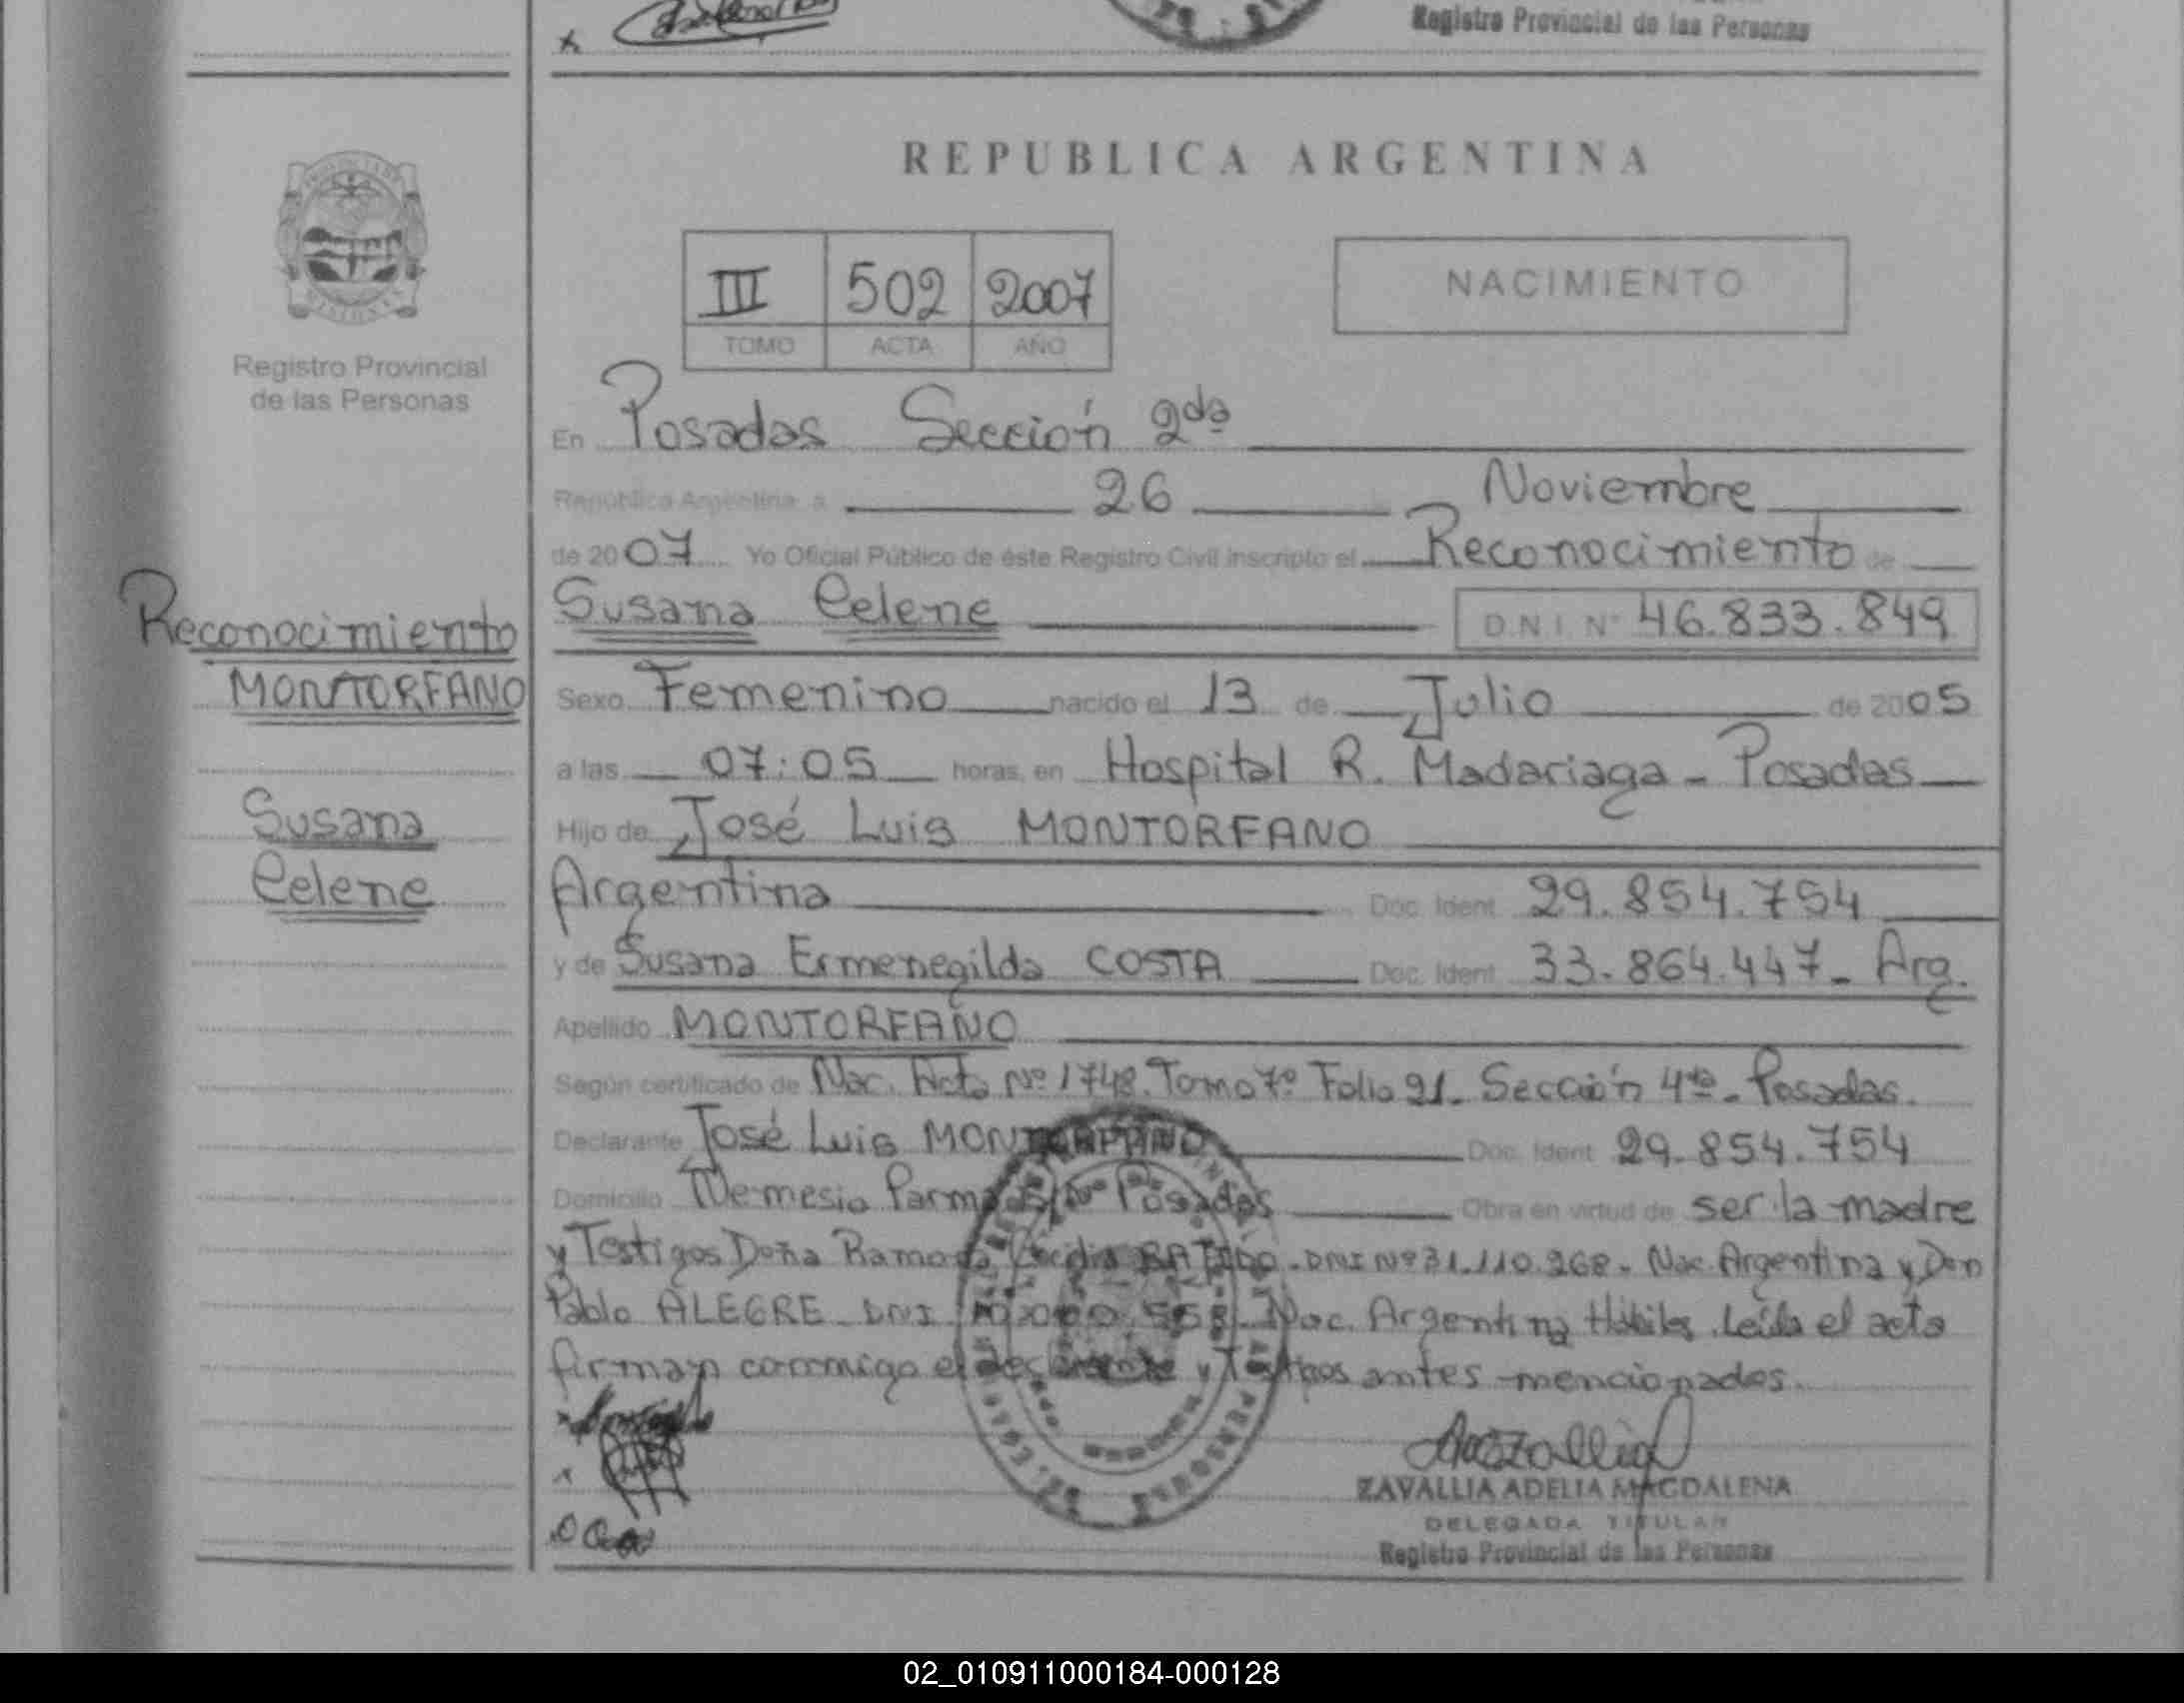 Registro Provincial de las Personas
REPUBLICA ARGENTINA
III 502 2007
TOMO ACTA AÑO
NACIMIENTO
Registro Provincial
de las Personas
En Posadas Sección 2da
República Argentina a 26 Noviembre
de 2007 Yo Oficial Público de éste Registro Civil inscripto el Reconocimiento de
Susana Celene D N I N° 46.833.849
Reconocimiento
MONTORFANO
Susana
Celene
Sexo Femenino nacido el 13 de Julio de 2005
a las 07:05 horas, en Hospital R. Madariaga - Posadas
Hijo de José Luis MONTORFANO
Argentina Doc. Ident. 29.854.754
y de Susana Ermenegilda COSTA Doc. Ident. 33.864.447 - Arg.
Apellido MONTORFANO
Según certificado de Nac. Acta Nº 1748. Tomo 7º Folio 91. Sección 4ta - Posadas.
Declarante José Luis MONTORFANO Doc. Ident. 29.854.754
Domicilio Nemesio Parma Posadas Obra en virtud de ser la madre
y Testigos Doña Ramona DNI Nº 31.110.268. Nac. Argentina y Don
Pablo ALEGRE DNI Nac. Argentina Hábiles. Leída el acta
firman conmigo el declarante y Testigos antes mencionados.
ZAVALLIA ADELIA MAGDALENA
DELEGADA TITULAR
Registro Provincial de las Personas
02_010911000184-000128